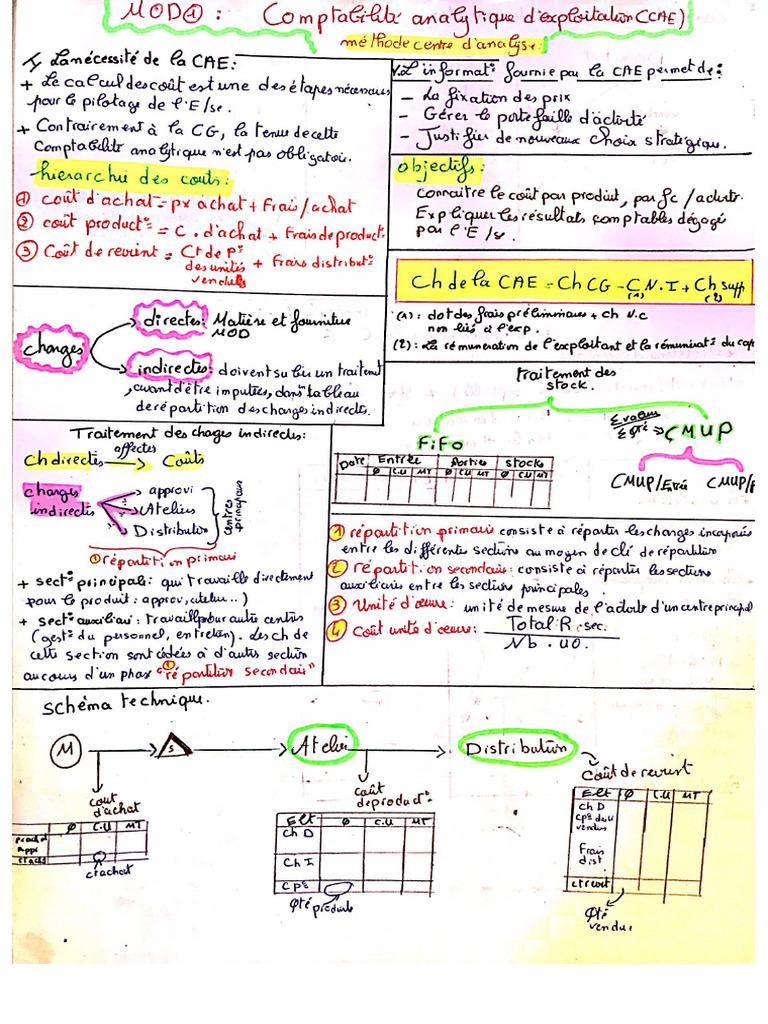 MOD① : Comptabilité analytique d'exploitation (CAE)
méthode centre d'analyse:
I/ La nécessité de la CAE:
+ Le calcul des coût est une des étapes nécessaires
pour le pilotage de l'E/se.
+ Contrairement à la CG, la tenue de cette
Comptabilité analytique n'est pas obligatoire.
hierarchi des couts:
① coût d'achat = px achat + Frais/achat
② coût product° = C. d'achat + Frais de product°
③ Coût de revient = Ct de P° des unités vendues + Frais distribut°
L'informat° fournie par la CAE permet de:
- La fixation des prix
- Gérer le portefeuille d'activité
- Justifier de nouveaux choix stratégique.
objectifs:
Connaitre le coût par produit, par fc/activité.
Expliquer les résultats comptables dégagé
par l'E/se.
Ch de la CAE = Ch CG - C.N.I + Ch supp
(1) (2)
(1): dot des frais préliminaires + ch N.C
non liés à l'exp.
(2): La rémuneration de l'exploitant et la rémunirat° du cap
Charges
directes: Matière et fourniture
MOD
indirectes: doivent subir un traitement
, avant d'être imputées, dans tableau
de répartition des charges indirectes.
Traitement des
stock.
FiFo
Evalues
CMUP
CMUP/Entrée CMUP/
Date Entrée Sorties Stock
Q C.U MT Q C.U MT Q C.U MT
Traitement des chages indirectes:
Ch directes affectes Coûts
charges
indirectes
approvi
Ateliers
Distribution
centres
principaux
① répartition primaire
+ sect° principal: qui travaille directement
pour le produit: approv, atelier..)
+ sect° auxiliaire: travaill pour autre centres
(gest° du personnel, entretien). Les ch de
cette section sont cédées à d'autres section
au cours d'un phase "répartition secondaire"
① répartition primaire consiste à répartir les charges incorporés
entre les différentes section au moyen de clé de répartition
② répartition secondaire: consiste à répartir les sections
auxiliaires entre les section principales.
③ Unité d'oeuvre: unité de mesure de l'activité d'un centre principal
④ Coût unité d'oeuvre: Total R. sec.
Nb. UO.
Schéma technique.
M S Atelier Distribution
cout
d'achat
Q C.U MT
Appr
ct achat
coût
de product°
Elt Q C.U MT
Ch D
Ch I
C P°
Qté produite
Coût de revient
Elt Q C.U MT
Ch D
CP° des U
vendues
Frais
dist.
ct revient
Qté
vendue